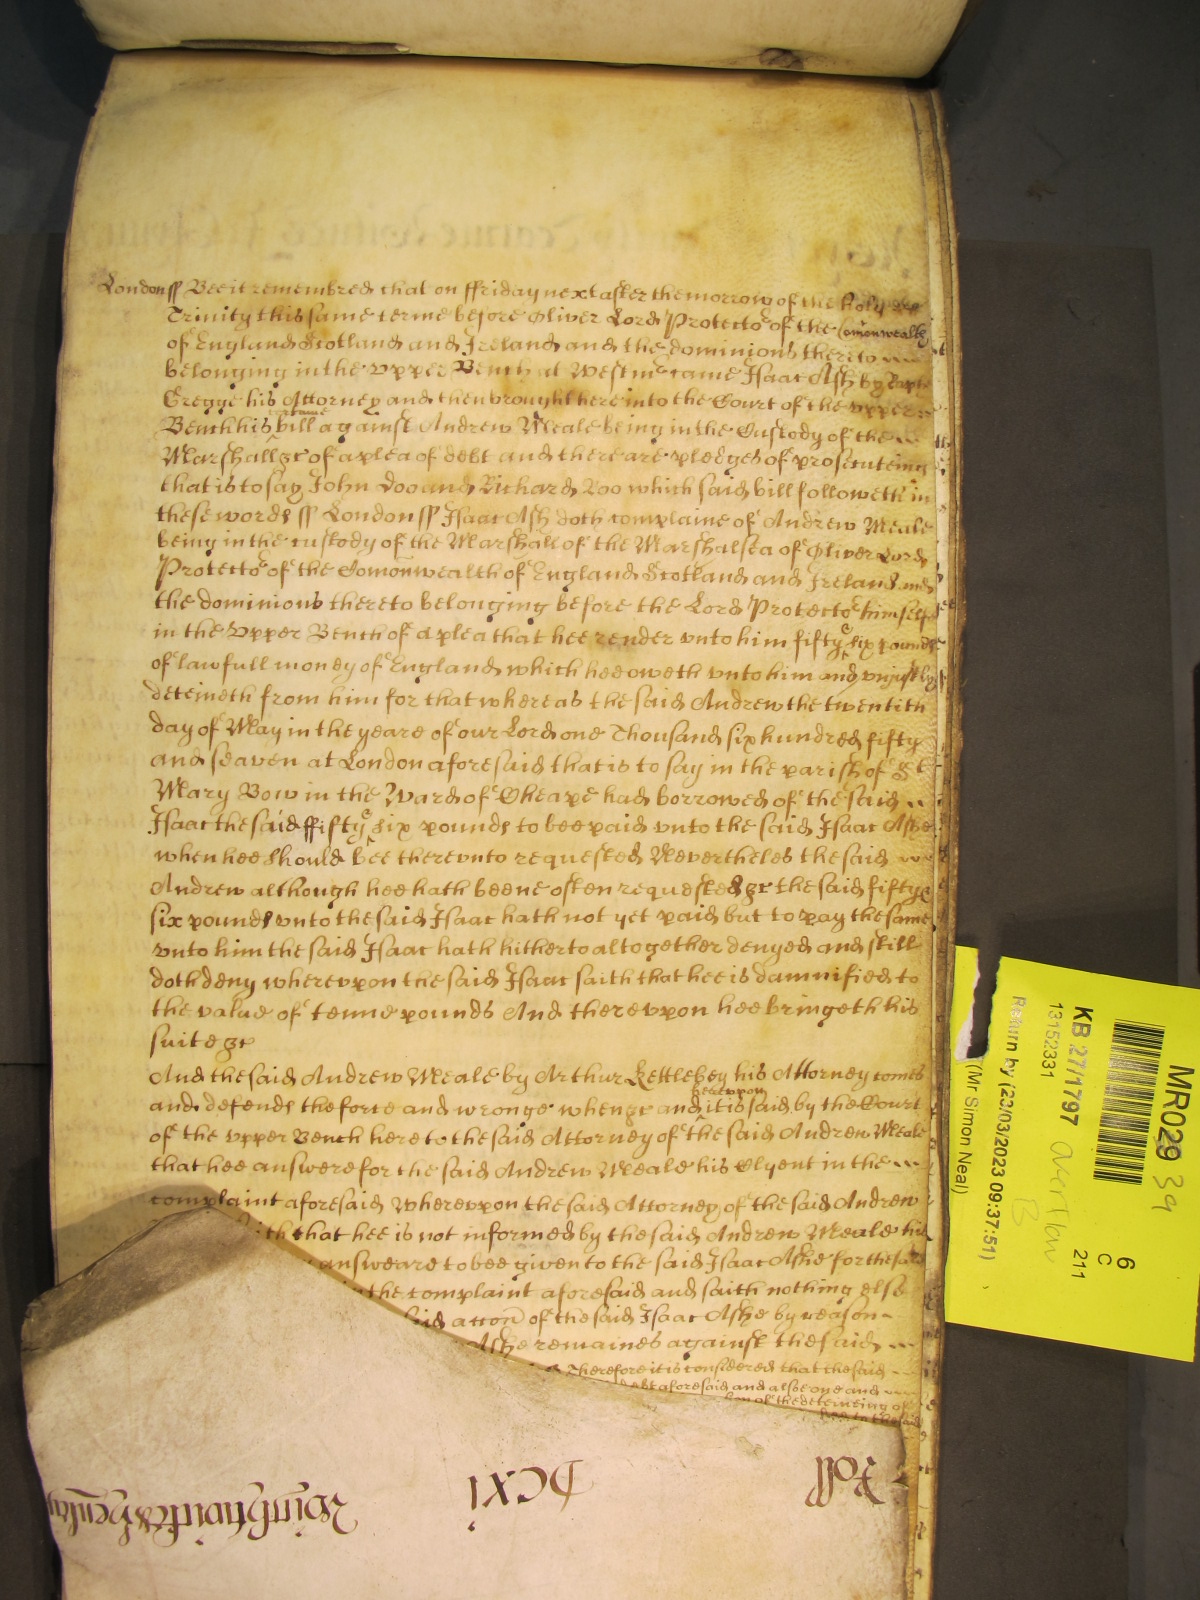 London ss Bee it remembred that on ffriday next after the morrow of the holy
Trinity this same terme before Oliver Lord Protector of the Comonwealth
of England Scotland and Ireland and the dominions thereto
belonging in the vpper Bench at Westmr came Isaac Ash by
Gregge his Attorney and then brought here into the Court of the vpper
Bench his certaine bill against Andrew Meale being in the Custody of the
Marshall &c of a plea of debt and there are pledges of prosecuteing
that is to say John Doo and Richard Roo which said bill followeth in
these words ss London ss Isaac Ash doth complaine of Andrew Meale
being in the custody of the Marshall of the Marshalsea of Oliver Lord
Protector of the Comonwealth of England Scotland and Ireland and
the dominions thereto belonging before the Lord Protector himselfe
in the Vpper Bench of a plea that hee render vnto him fifty & six pounds
of lawfull money of England which hee oweth vnto him and vnjustly
deteineth from him for that whereas the said Andrew the twentith
day of May in the yeare of our Lord one Thousand six hundred fifty
and seaven at London aforesaid that is to say in the parish of St
Mary Bow in the Ward of Cheape had borrowed of the said
Isaac the said ffifty & six pounds to bee paid vnto the said Isaac Ashe
when hee should bee therevnto requested Nevertheles the said
Andrew although hee hath beene often requested &c the said fifty &
six pounds vnto the said Isaac hath not yet paid but to pay the same
vnto him the said Isaac hath hitherto altogether denyed and still
doth deny wherevpon the said Isaac saith that hee is damnified to
the value of tenne pounds And therevpon hee bringeth his
suite &c
And the said Andrew Meale by Arthur Kettlebey his Attorney comes
and defends the force and wronge when &c and herevpon it is said by the Court
of the vpper Bench here to the said Attorney of the said Andrew Meale
that hee answere for the said Andrew Meale his Clyent in the
complaint aforesaid Wherevpon the said Attorney of the said Andrew
that hee is not informed by the said Andrew Meale his
answeare to bee given to the said Isaac Ashe for the said
the complaint aforesaid and saith nothing else
said accon of the said Isaac Ashe by reason
Ashe remaines against the said
Therefore it is considered that the said
debt aforesaid and alsoe one and
of the deteineing of
to the said
Roll DCxi
MR029 39
KB 27/1797
13152331
Return by (23/03/2023 09:37:51)
(Mr Simon Neal)
6
C
211
B